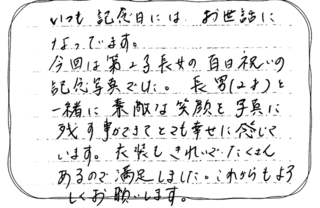 いつも記念日には お世話に
なっています。
今回は第2子長女の百日祝いの
記念写真でした。長男(2才)と
一緒に素敵な笑顔を写真に
残す事ができてとても幸せに感じて
います。衣装もきれいでたくさん
あるので満足しました。これからもよろ
しくお願いします。